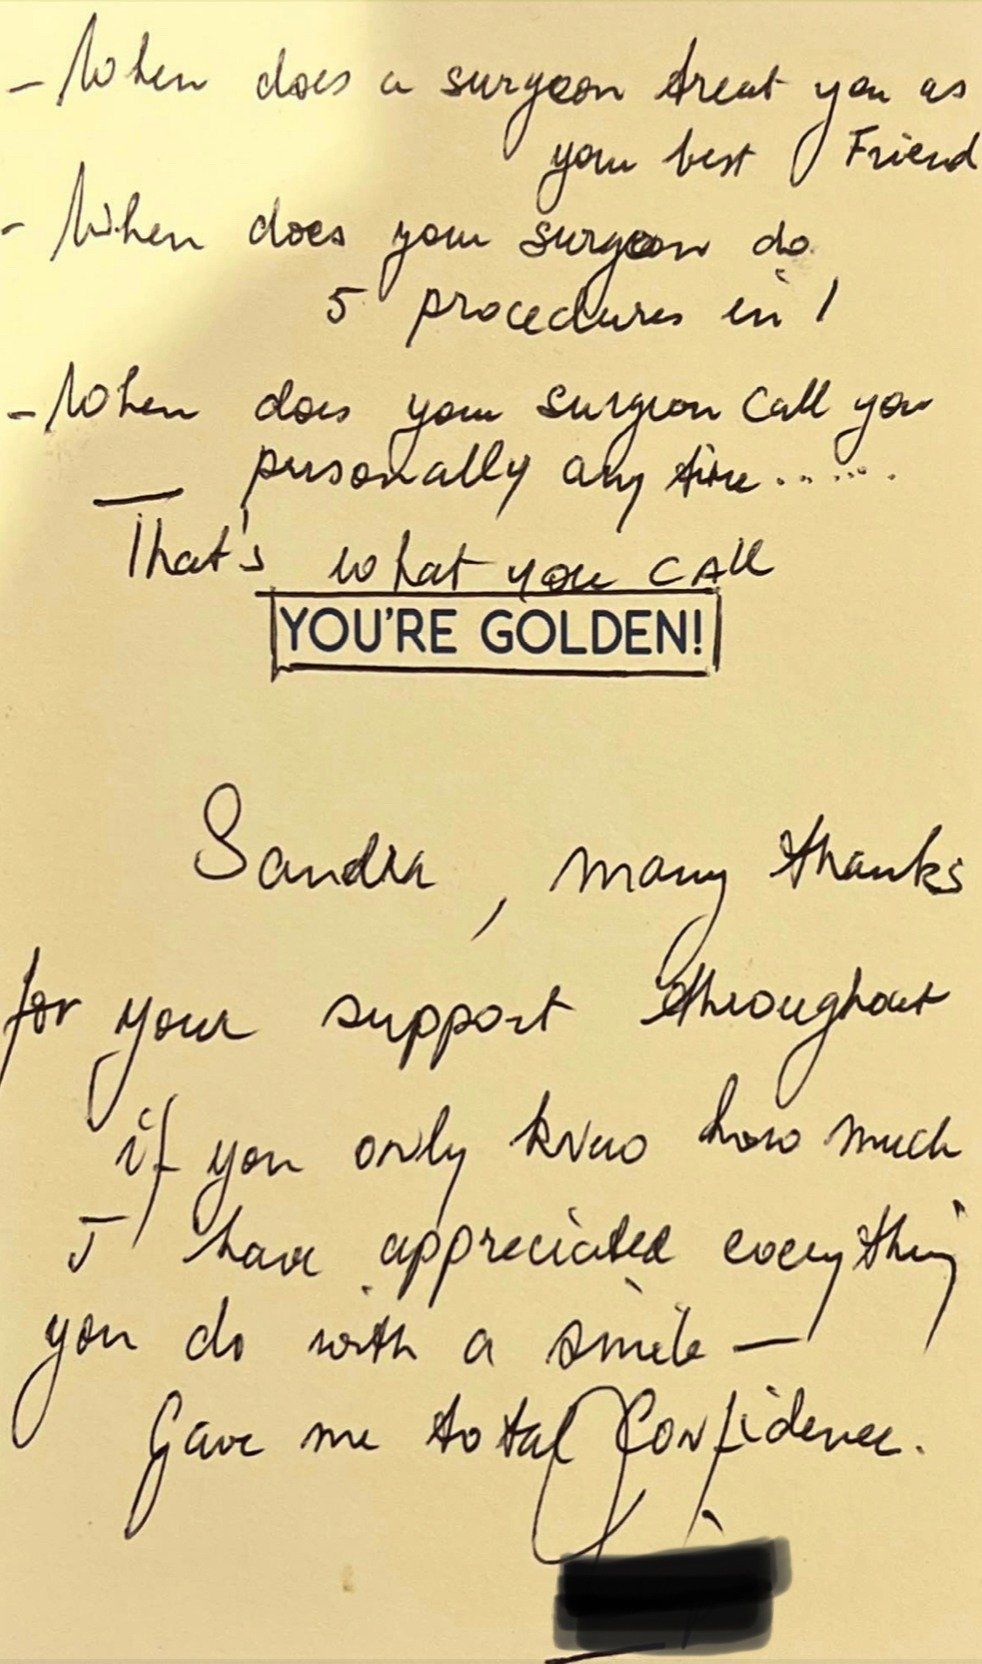 - When does a surgeon treat you as
your best Friend
- When does your surgeon do
5 procedures in 1
- When does your surgeon call you
personally any time......
That's what you CALL
YOU'RE GOLDEN!
Sandra, many thanks
for your support throughout
if you only knew how much
I have appreciated everything
you do with a smile -
Gave me total Confidence.